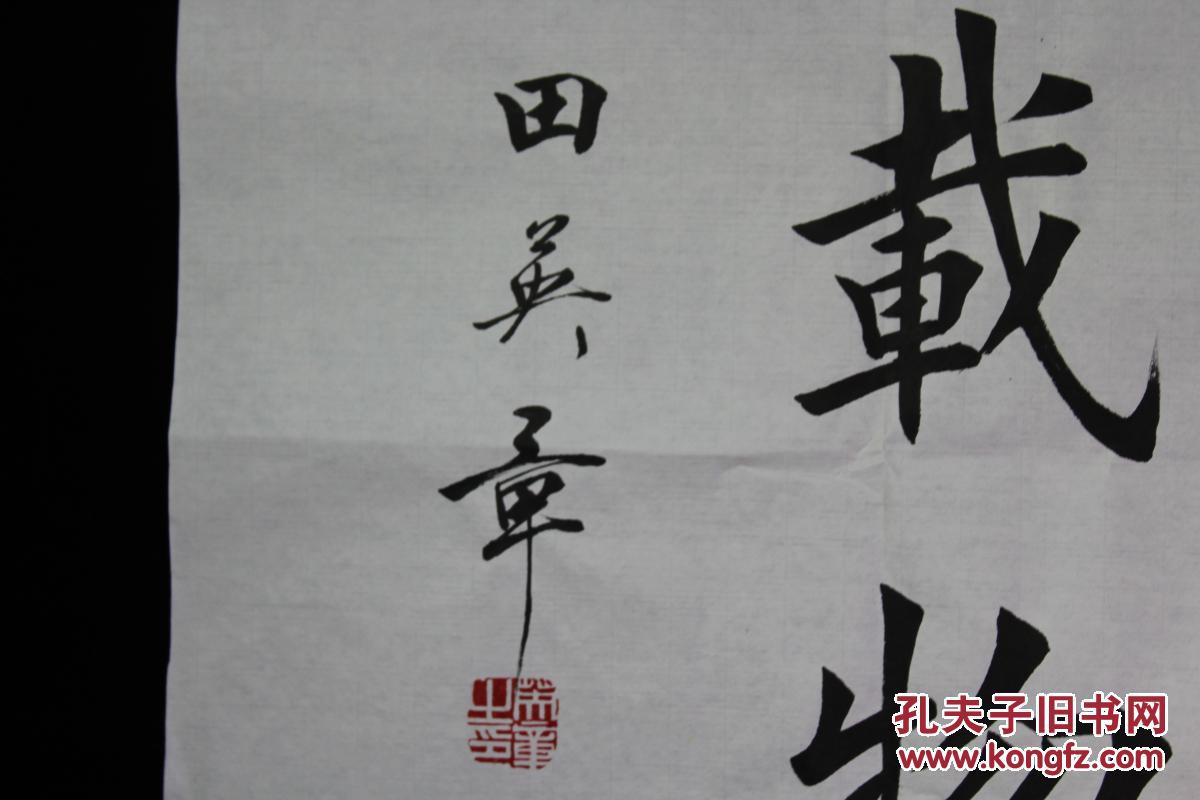 載物
田英章
英章之印
孔夫子旧书网
www.kongfz.com